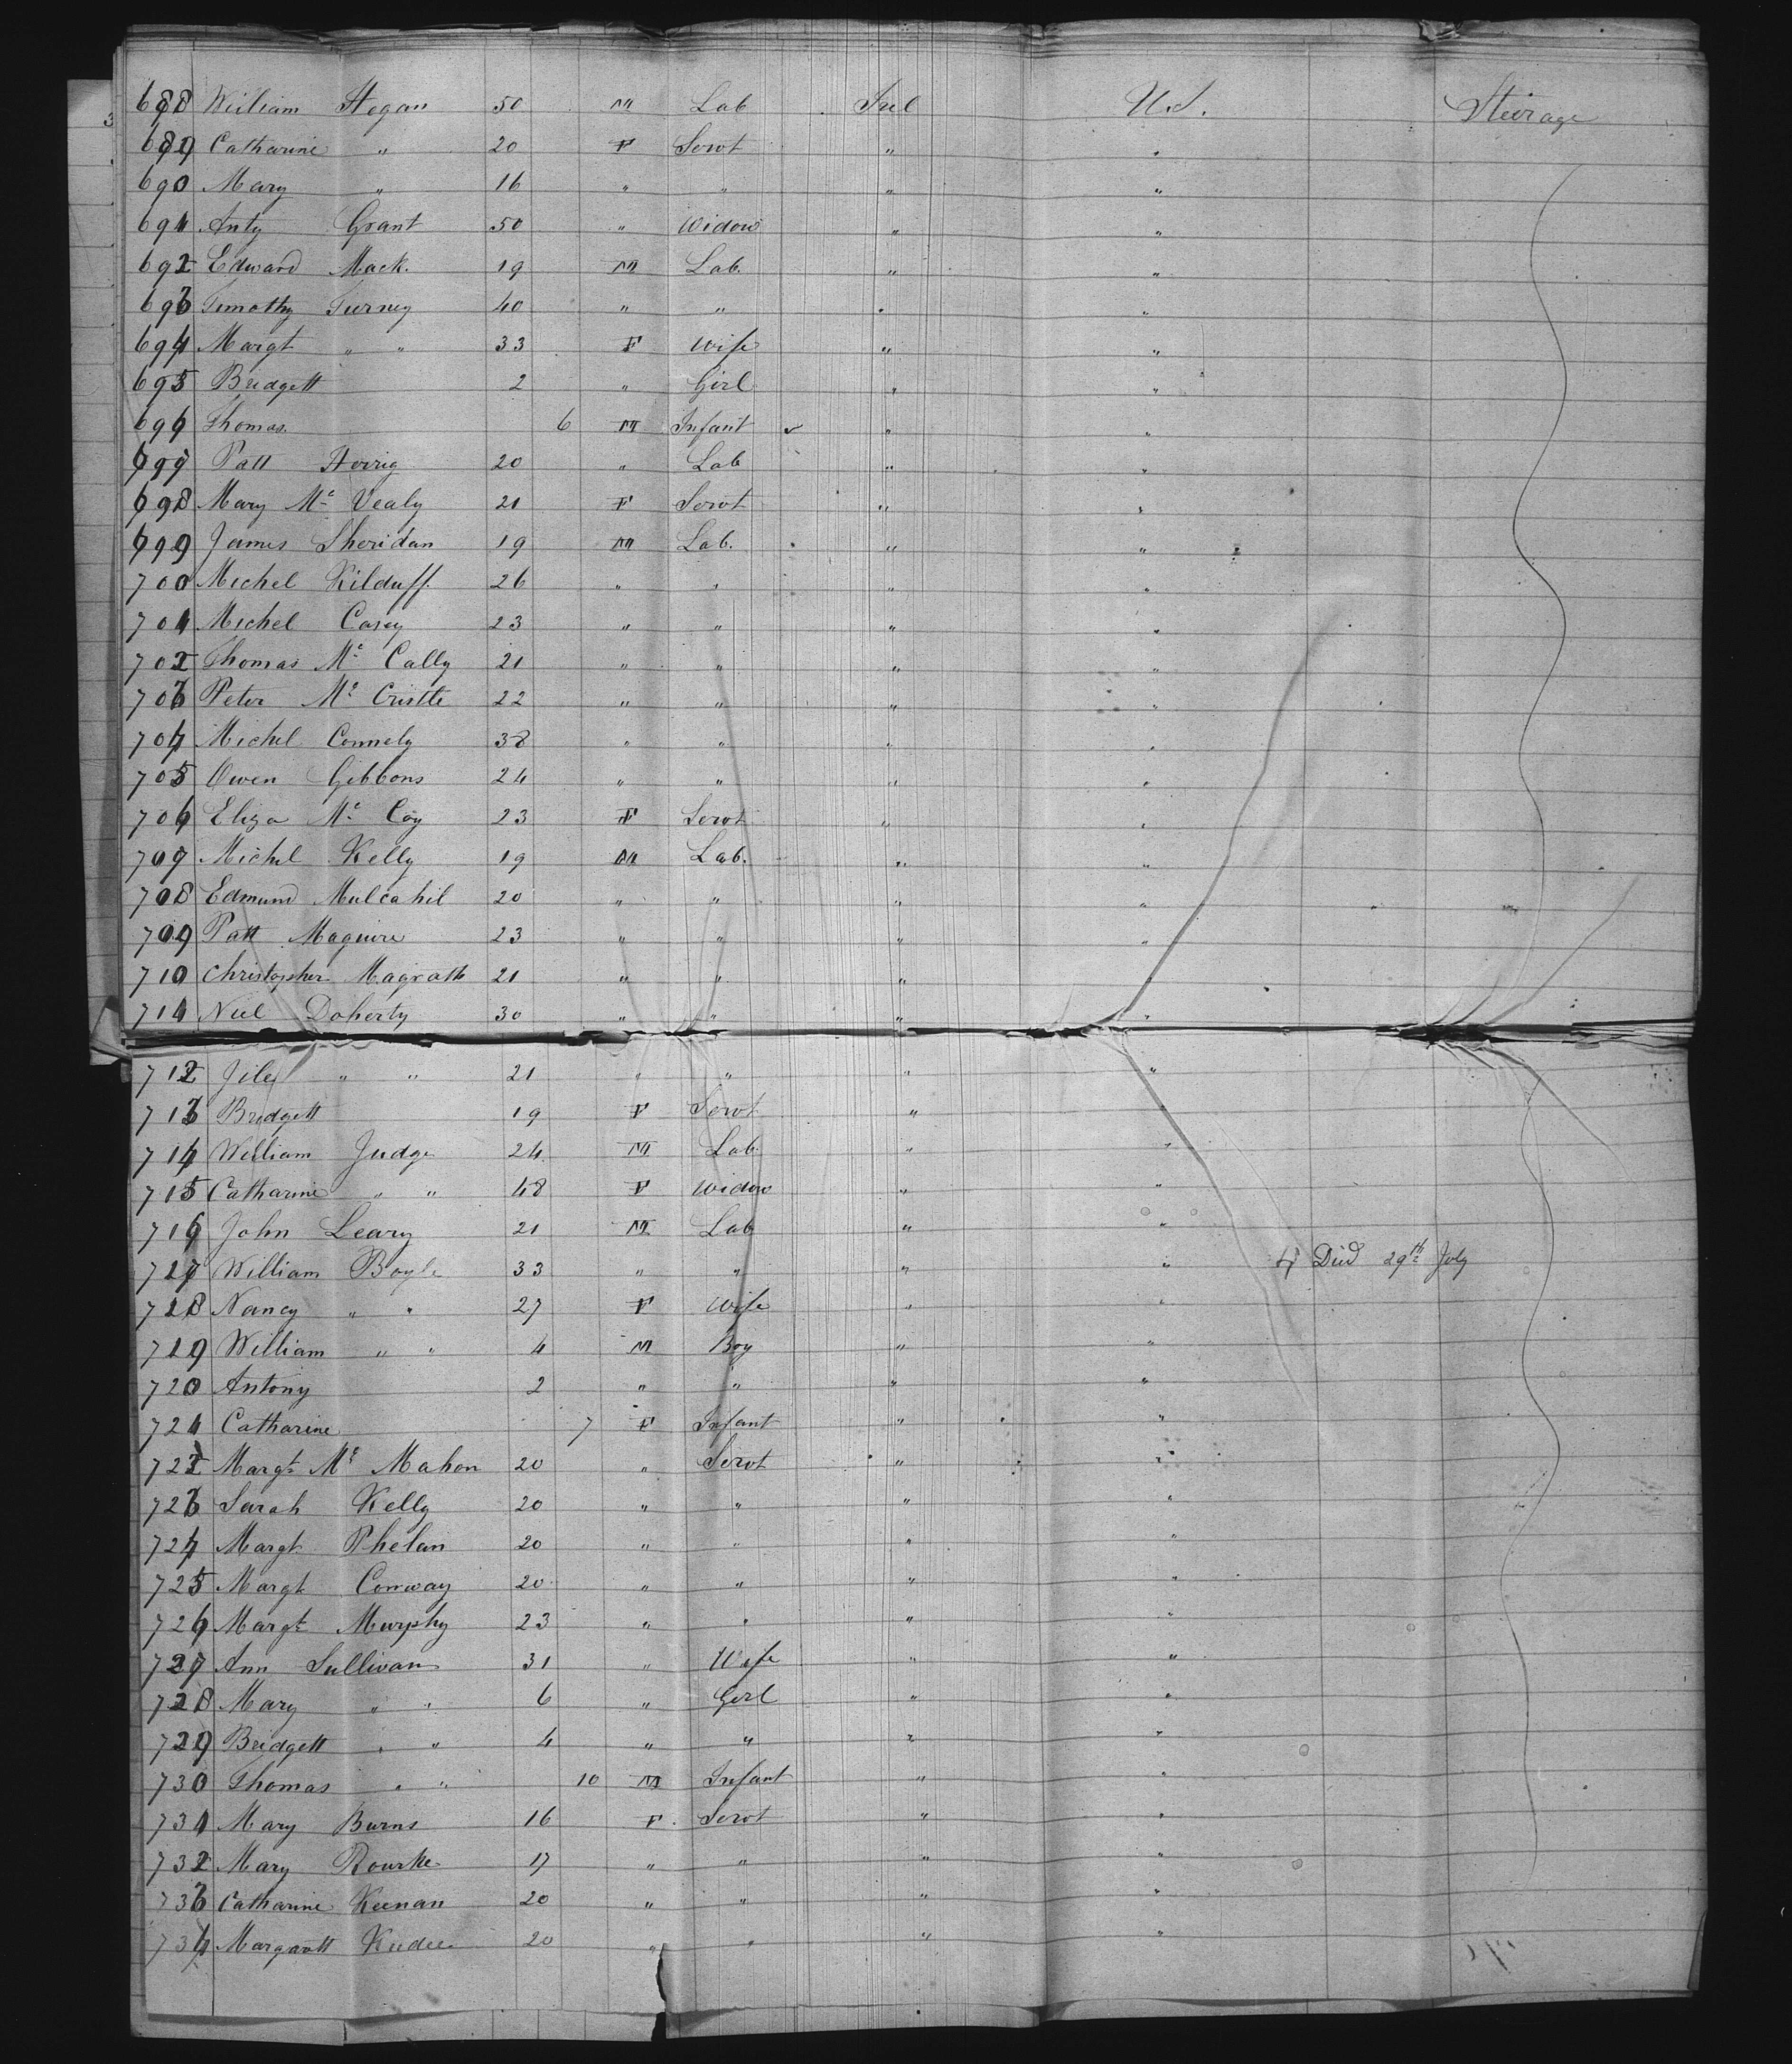 688 William Hogan 50 M Lab Irel U.S. Steerage
689 Catharine " 20 F Servt " "
690 Mary " 16 " " " "
691 Anty Grant 50 " Widow " "
692 Edward Mack. 19 M Lab. " "
693 Timothy Turney 40 " " " "
694 Margt " " 33 F Wife " "
695 Bridgett 2 " Girl " "
696 Thomas 6 M Infant " "
697 Patt 20 " Lab " "
698 Mary Mc Vealy 21 F Servt " "
699 James Sheridan 19 M Lab. " "
700 Michel Kilduff 26 " " " "
701 Michel Casey 23 " " " "
702 Thomas Mc Cally 21 " " " "
703 Peter Mc Cristle 22 " " " "
704 Michel Connely 38 " " " "
705 Owen Gibbons 24 " " " "
706 Eliza Mc Coy 23 F Servt " "
707 Michel Kelly 19 M Lab. " "
708 Edmund Mulcahil 20 " " " "
709 Patt Maguire 23 " " " "
710 Christopher Magrath 21 " " " "
711 Niel Doherty 30 " " " "
712 " " 21 " " " "
713 Bridgett 19 F Servt " "
714 William Judge 24 M Lab. " "
715 Catharine " " 48 F Widow " "
716 John Leary 21 M Lab " "
717 William Boyle 33 " " " " Died 29th July
718 Nancy " " 27 F Wife " "
719 William " " 4 M Boy " "
720 Antony 2 " " " "
721 Catharine 7 F Infant " "
722 Margt Mc Mahon 20 " Servt " "
723 Sarah Kelly 20 " " " "
724 Margt Phelan 20 " " " "
725 Margt Conway 20 " " " "
726 Margt Murphy 23 " " " "
727 Ann Sullivan 31 " Wife " "
728 Mary " " 6 " Girl " "
729 Bridgett " " 4 " " " "
730 Thomas " " 10 M Infant " "
731 Mary Burns 16 F Servt " "
732 Mary Rourke 17 " " " "
733 Catharine Keenan 20 " " " "
734 Margarett 20 " " " "